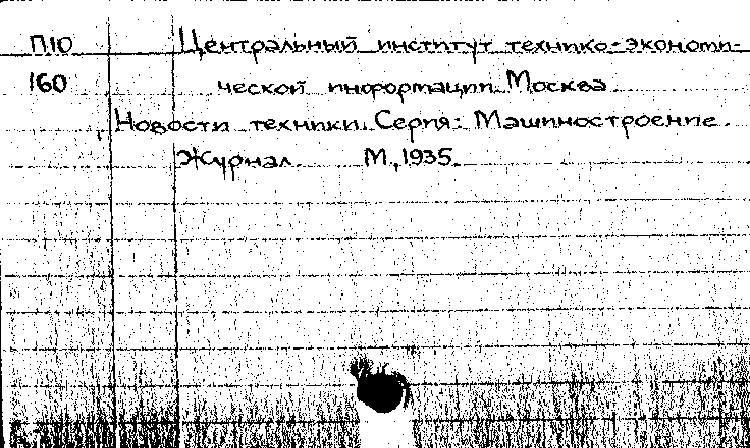 П10 Центральный институт технико-экономи-
160 ческой информации. Москва.
Новости техники. Серия: Машиностроение.
Журнал. М., 1935.